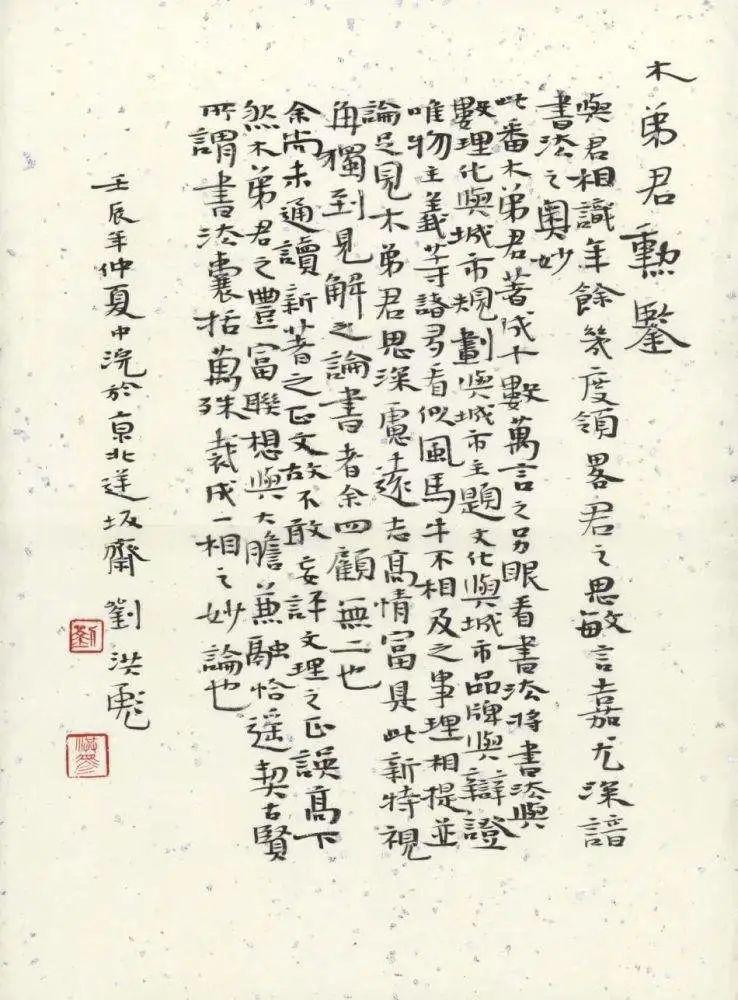 木弟君勲鑒
與君相識年餘幾度領畧君之思敏言嘉尤深諳
書法之奧妙
此番木弟君著成十數萬言之另眼看書法将書法與
數理化與城市規劃與城市主題文化與城市品牌與辯證
唯物主義等諸多看似風馬牛不相及之事理相提並
論足見木弟君思深慮遠志高情富具此新特視
角獨到見解之論書者余四顧無二也
余尚未通讀新著之正文故不敢妄評文理之正誤高下
然木弟君之豐富聯想與大膽兼融恰遥契古賢
所謂書法囊括萬殊裁成一相之妙論也
壬辰年仲夏中浣於京北逆坂齋劉洪彪
劉
洪彪